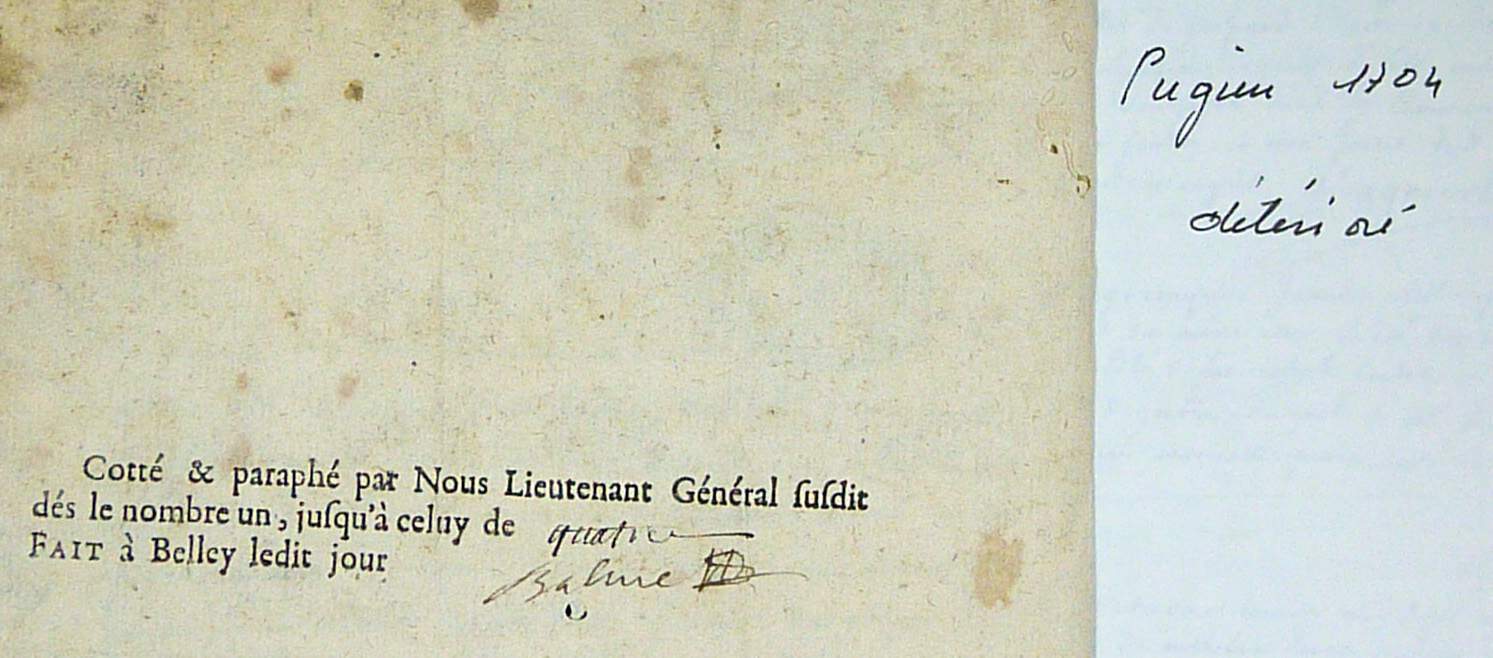 Cotté & paraphé par Nous Lieutenant Général ſuſdit
dés le nombre un, juſqu'à celuy de quatre
FAIT à Belley ledit jour
Balme
Pugieu 1704
détérioré